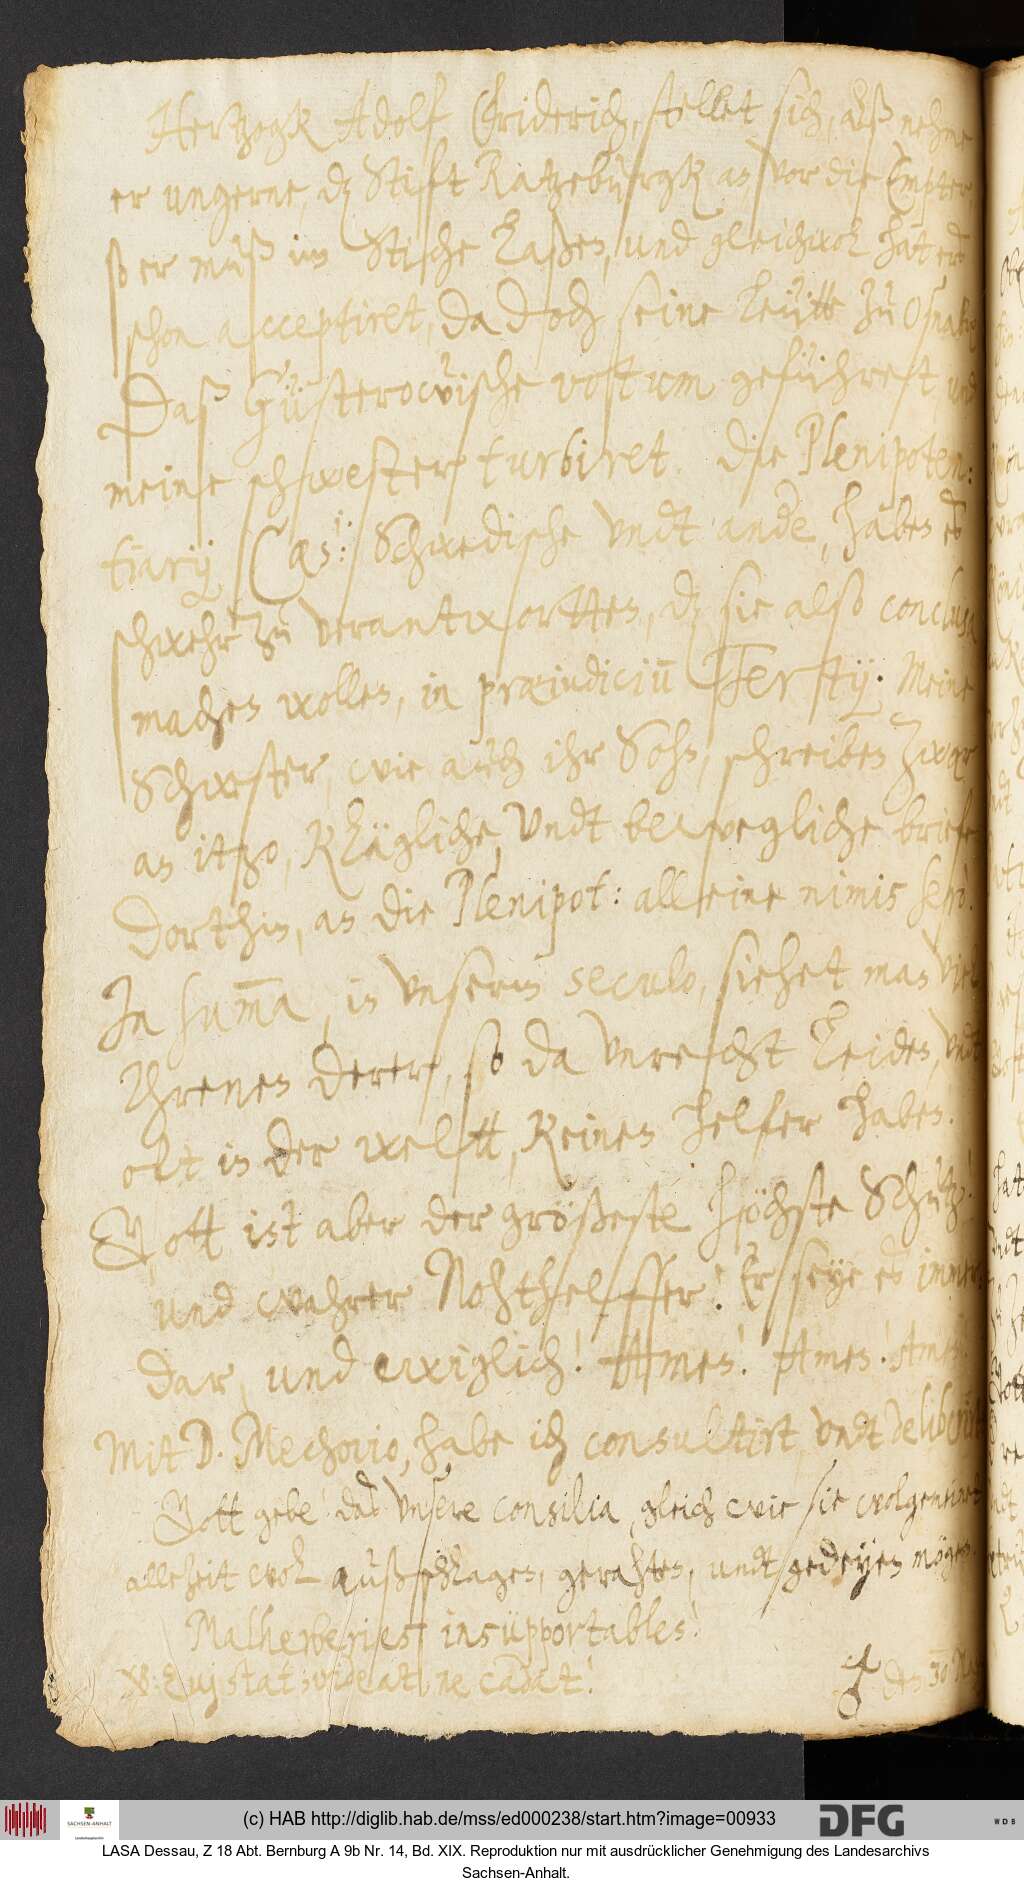 Hertzogk Adolf Friderich, stellet sich, alß nehme
er ungerne, dz Stift Ratzeburgk an, vor die Empter,
so er muß im Stiche laßen, und gleichwol hat erß
schon acceptiret, da doch seine leütte zu Oßnabrügk
Daß Güsterowische votum geführest, und
meine schwester turbiret. Die Plenipoten:
tiarij Cæs: Schwedische undt andre, haben eß
schwehr zu verantwortten, dz sie also conclusa
machen wollen, in præiudiciũ Tertij. Meine
Schwester, wie auch ihr Sohn, schreiben zwar
an itzo, klägliche, undt bewegliche briefe
dorthin, an die Plenipot: alleine nimis sero.
In summa, in unserm seculo, siehet man viel
Threnen derer, so da unrecht leiden, undt
oft in der weltt, keinen helfer haben.
Gott ist aber der größeste höchste Schutz!
und wahrer Nohthelffer! Er seye eß immer
dar, und ewiglich! Amen! Amen! Amen!
Mit D. Mechovio, habe ich consultirt, undt deliberirt
Gott gebe! daß unsere consilia, gleich wie sie wolgemeinet
allezeit wol außschlagen, gerahten, undt gedeyen mögen.
Malherberies insupportables!
Qui stat; videat, ne cadat!
den 30
(c) HAB http://diglib.hab.de/mss/ed000238/start.htm?image=00933
DFG
WDB
SACHSEN-ANHALT
LASA Dessau, Z 18 Abt. Bernburg A 9b Nr. 14, Bd. XIX. Reproduktion nur mit ausdrücklicher Genehmigung des Landesarchivs
Sachsen-Anhalt.